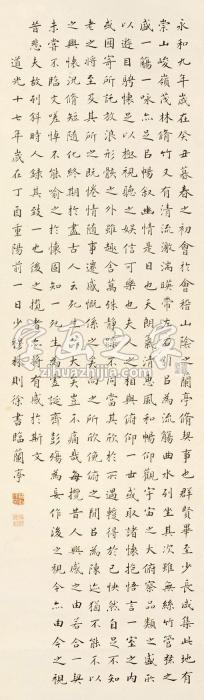 永和九年歲在癸丑暮春初會於會稽山陰之蘭亭脩禊事也群賢畢至少長咸集此地有
崇山峻嶺茂林脩竹又有清流激湍暎帶左右引以為流觴曲水列坐其次雖無絲竹管弦之
盛一觴一咏亦足以暢敘幽情是日也天朗氣清惠風和暢仰觀宇宙之大俯察品類之盛所
以遊目騁懷足以極視聽之娛信可樂也夫人之相與俯仰一世或取諸懷抱悟言一室之內
或因寄所託放浪形骸之外雖趣舍萬殊靜躁不同當其欣於所遇暫得於己快然自足不知
老之將至及其所之既惓情隨事遷感慨係之矣向之所欣俛仰之間以為陳迹猶不能不以
之興懷況脩短隨化終期於盡古人云死生亦大矣豈不痛哉每攬昔人興感之由若合一契
未嘗不臨文嗟悼不能喻之於懷固知一死生為虛誕齊彭殤為妄作後之視今亦由今之視
昔悲夫故列敘時人錄其致一也後之攬者亦將有感於斯文
道光十七年歲在丁酉重陽前一日少穆林則徐書臨蘭亭
字画之家
zihuazhijia.com